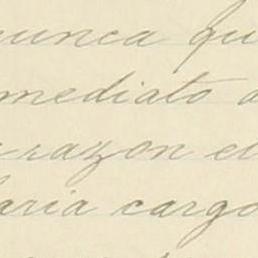 nunca qu
mediato a
razon el
aria cargo